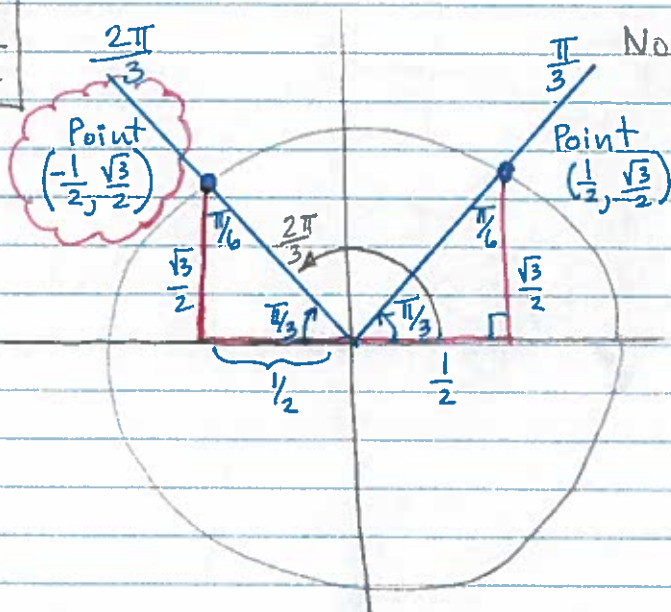 2π/3
π/3
No
Point
(-1/2, √3/2)
Point
(1/2, √3/2)
π/6
2π/3
π/6
√3/2
√3/2
π/3
π/3
1/2
1/2